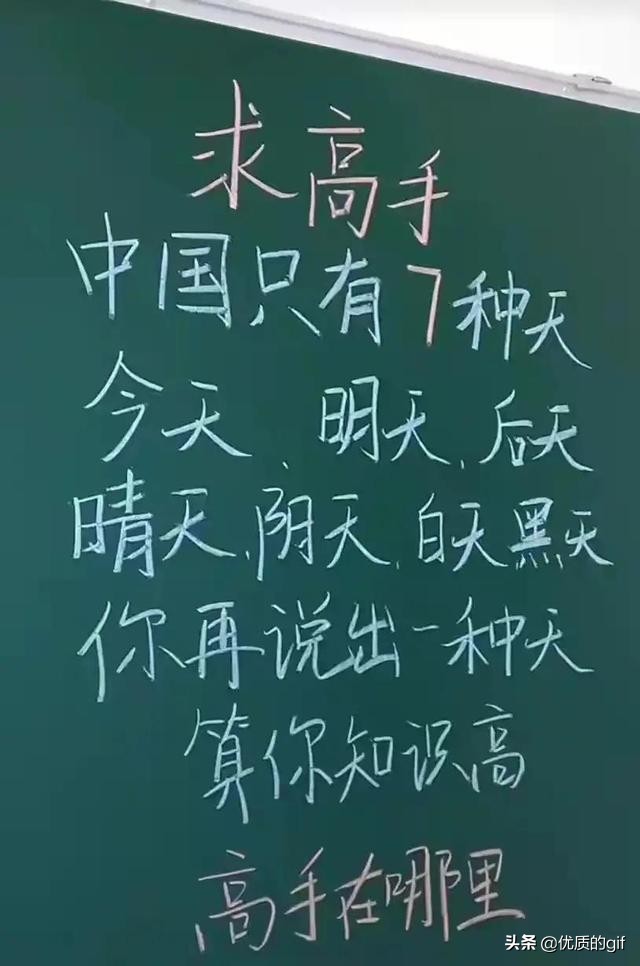 求高手
中国只有7种天
今天、明天、后天
晴天、阴天、白天黑天
你再说出一种天
算你知识高
高手在哪里
头条 @优质的gif